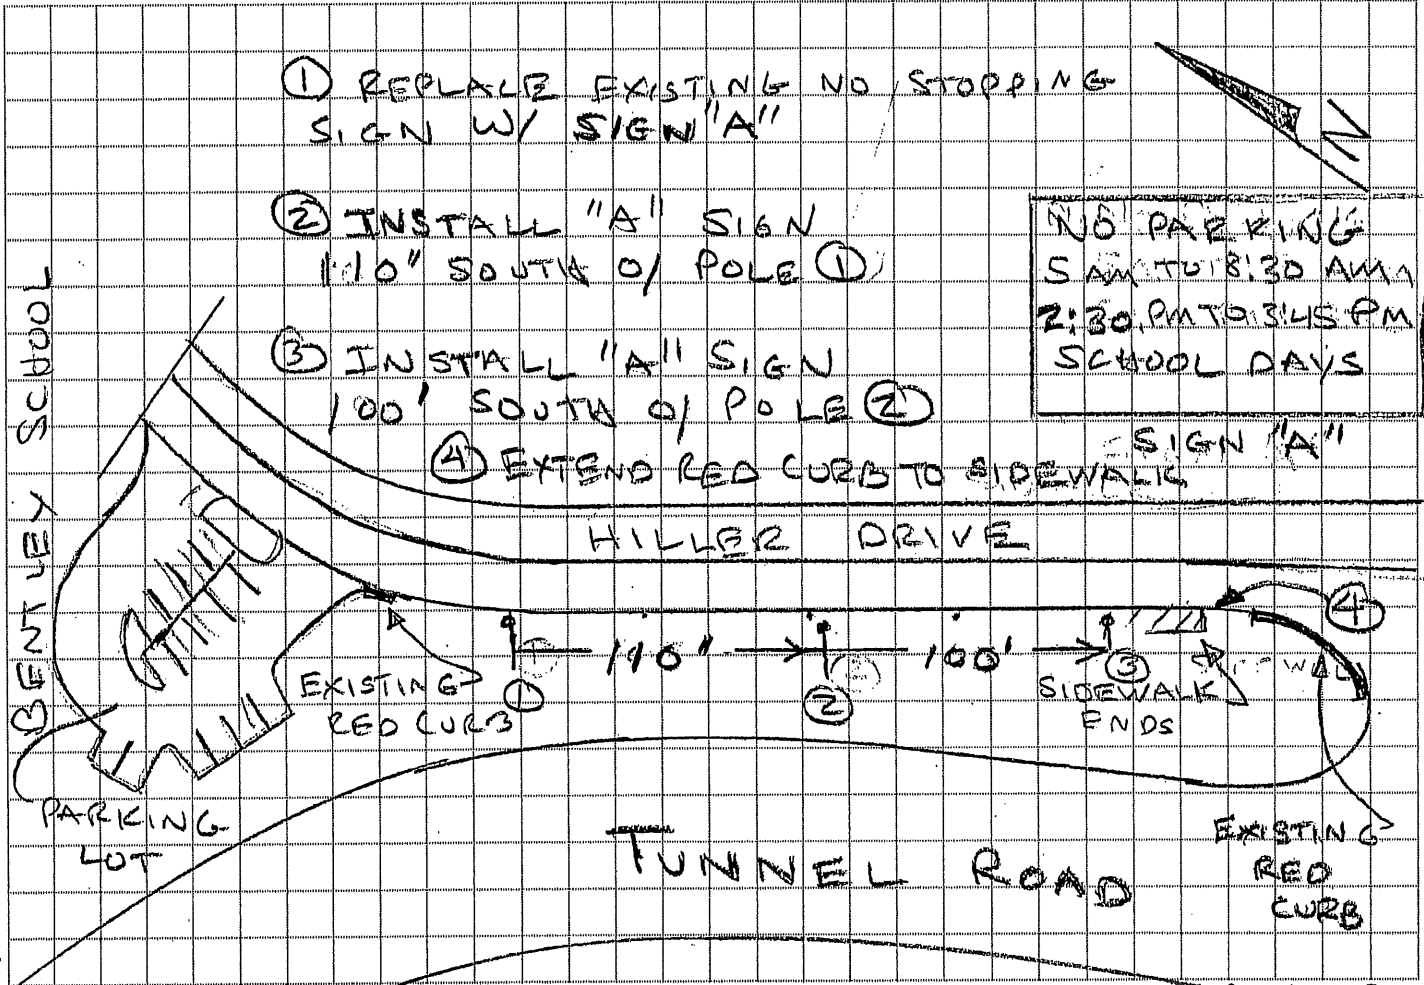 ① REPLACE EXISTING NO STOPPING
SIGN W/ SIGN "A"
② INSTALL "A" SIGN
110" SOUTH O/ POLE ①
③ INSTALL "A" SIGN
100' SOUTH O/ POLE ②
④ EXTEND RED CURB TO SIDEWALK
N
NO PARKING
5 AM TO 8:30 AM
2:30 PM TO 3:45 PM
SCHOOL DAYS
SIGN "A"
BENTLEY SCHOOL
HILLER DRIVE
④
110"
100'
①
②
③
EXISTING
RED CURB
SIDEWALK
ENDS
PARKING
LOT
TUNNEL ROAD
EXISTING
RED
CURB